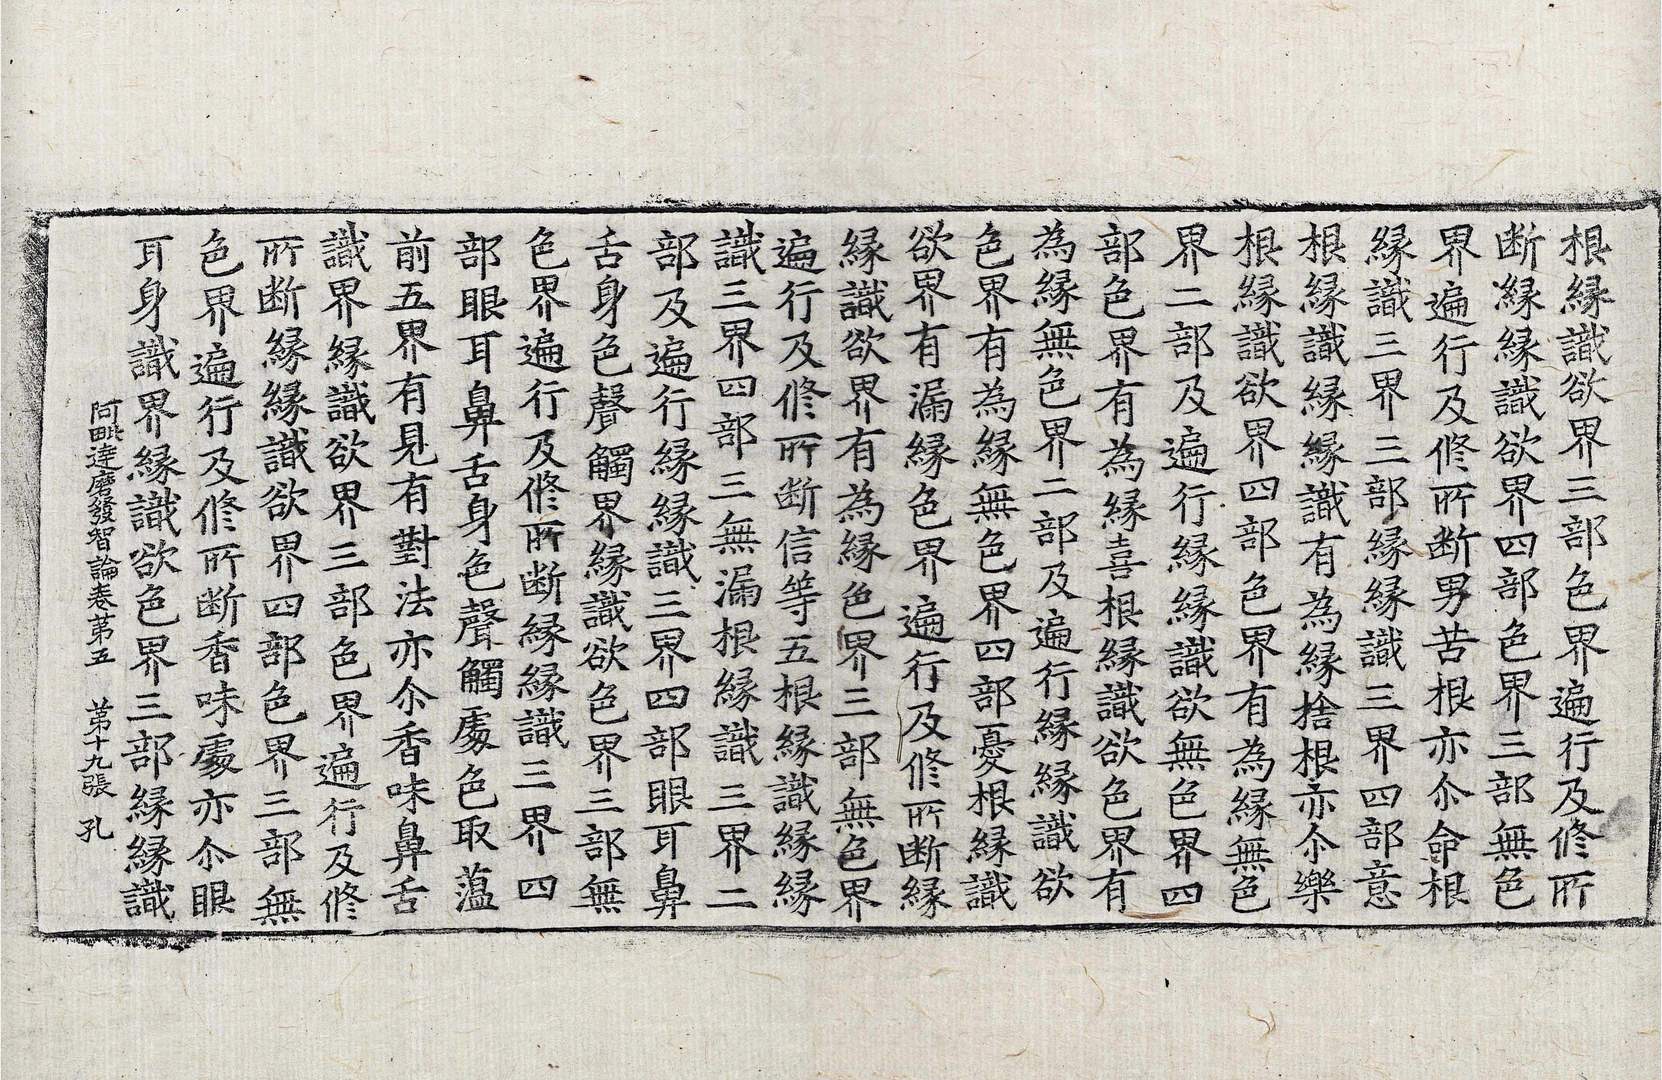 根縁識欲界三部色界遍行及修所
断縁縁識欲界四部色界三部無色
界遍行及修所断男苦根亦尒命根
縁識三界三部縁縁識三界四部意
根縁識縁縁識有為縁捨根亦尒樂
根縁識欲界四部色界有為縁無色
界二部及遍行縁縁識欲無色界四
部色界有為縁喜根縁識欲色界有
為縁無色界二部及遍行縁縁識欲
色界有為縁無色界四部憂根縁識
欲界有漏縁色界遍行及修所断縁
縁識欲界有為縁色界三部無色界
遍行及修所断信等五根縁識縁縁
識三界四部三無漏根縁識三界二
部及遍行縁縁識三界四部眼耳鼻
舌身色聲觸界縁識欲色界三部無
色界遍行及修所断縁縁識三界四
部眼耳鼻舌身色聲觸處色取蕴
前五界有見有對法亦尒香味鼻舌
識界縁識欲界三部色界遍行及修
所断縁縁識欲界四部色界三部無
色界遍行及修所断香味處亦尒眼
耳身識界縁識欲色界三部縁縁識
阿毗達磨發智論卷第五 第十九張 孔